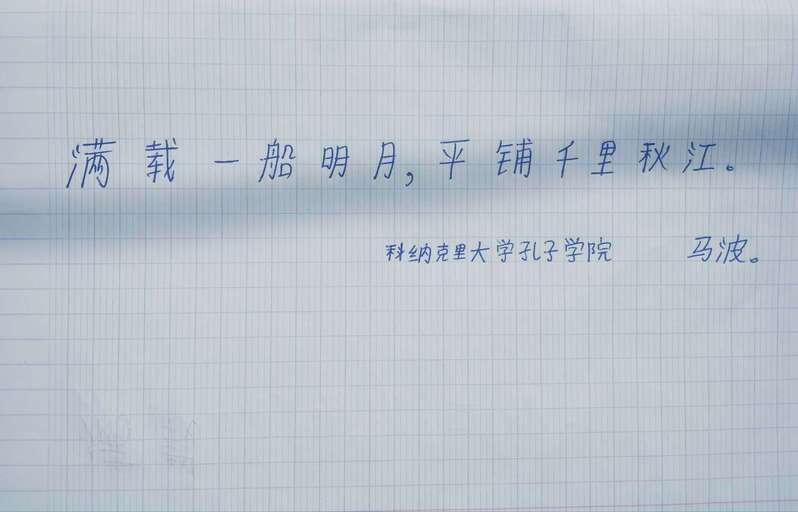 满载一船明月,平铺千里秋江。
科纳克里大学孔子学院 马波。